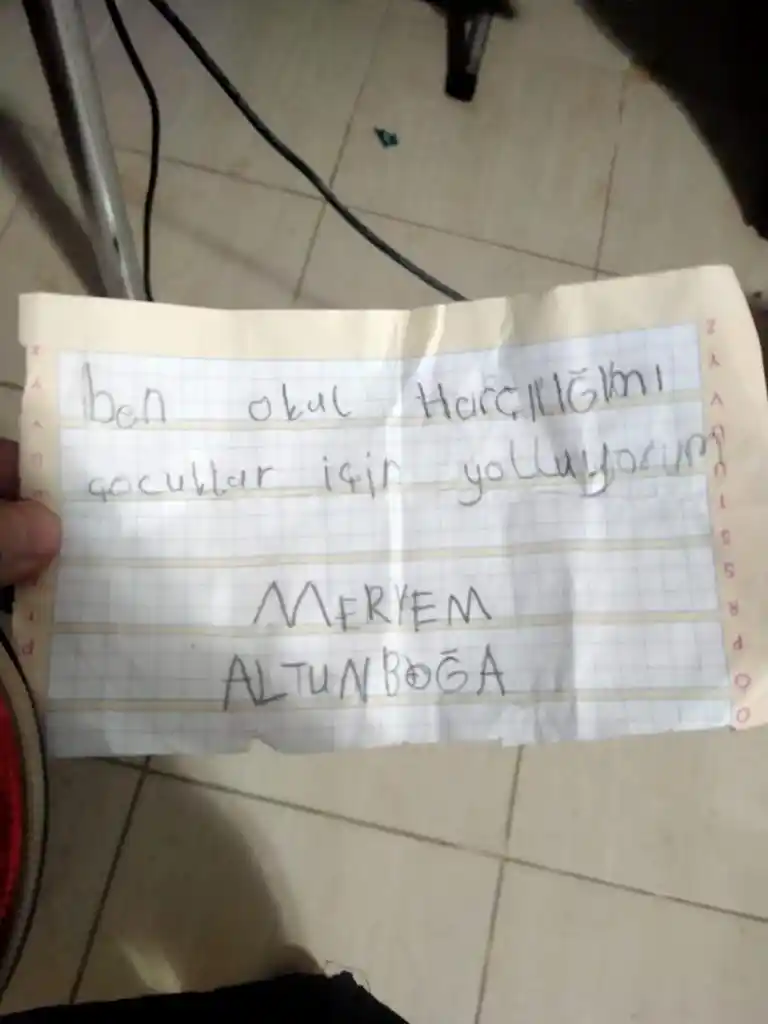 ben okul Harçlığımı
çocuklar için yolluyorum
MERYEM
ALTUNBOĞA